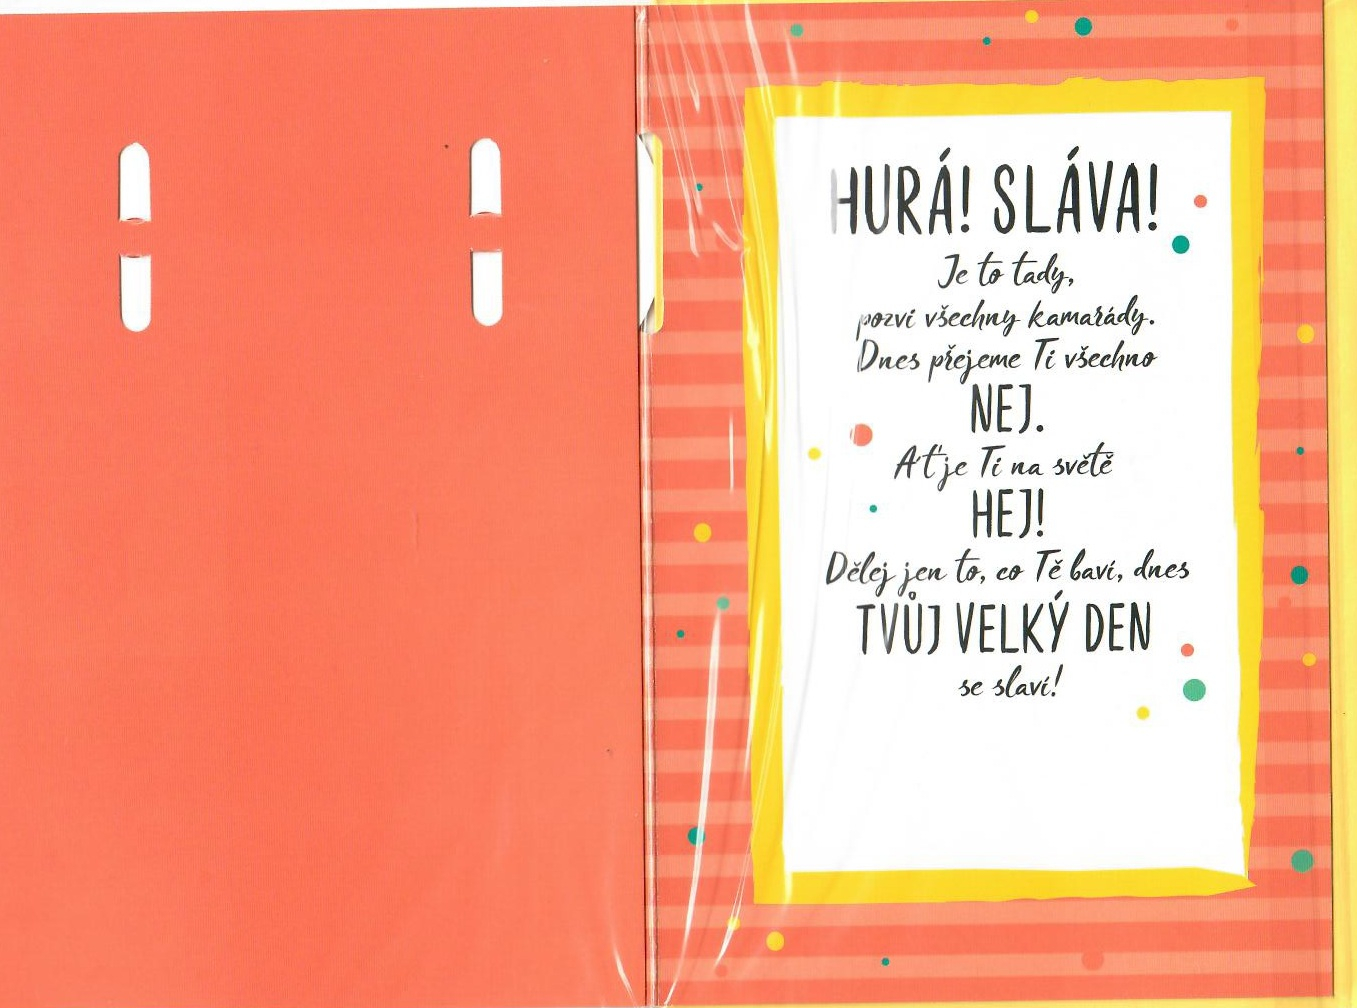 HURÁ! SLÁVA!
Je to tady,
pozvi všechny kamarády.
Dnes přejeme Ti všechno
NEJ.
Ať je Ti na světě
HEJ!
Dělej jen to, co Tě baví, dnes
TVŮJ VELKÝ DEN
se slaví!